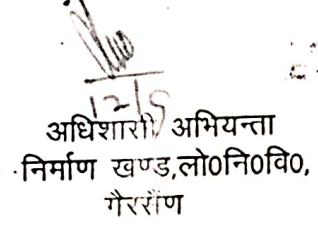 12/5
अधिशासी अभियन्ता
निर्माण खण्ड,लो0नि0वि0,
गैरसैंण